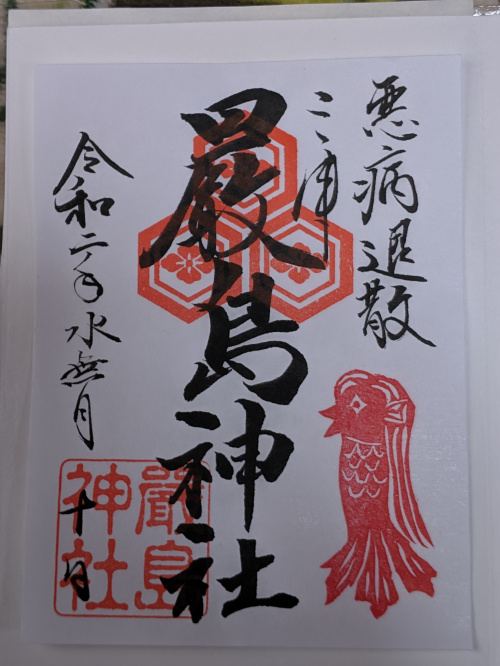 悪病退散
三津
嚴島神社
令和二年水無月
十日
嚴島
神社